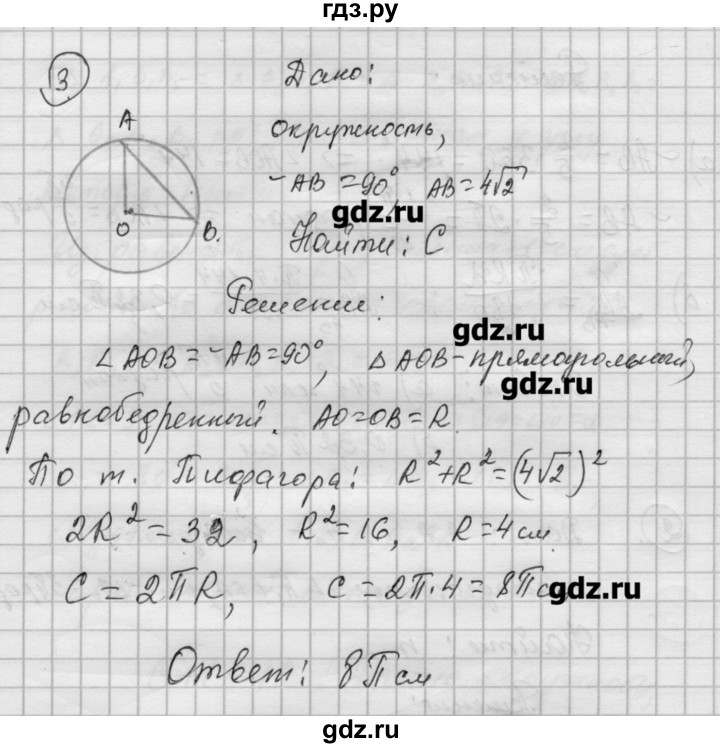 гдз.ру
3
Дано:
A
окружность,
◡AB = 90°, AB = 4√2
gdz.ru
O
B.
Найти: C
Решение:
gdz.ru
∠AOB = ◡AB = 90°, △AOB - прямоугольный,
gdz.ru
равнобедренный. AO = OB = R.
По т. Пифагора: R² + R² = (4√2)²
2R² = 32, R² = 16, R = 4 см
C = 2πR, C = 2π·4 = 8π см
gdz.ru
Ответ: 8π см
gdz.ru